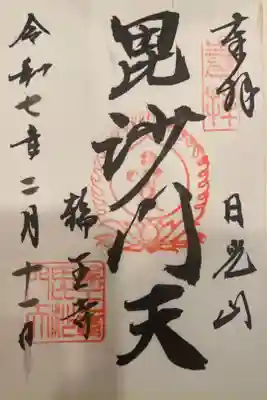 奉拝
日光山
毘沙門天
輪王寺
令和七年二月十一日